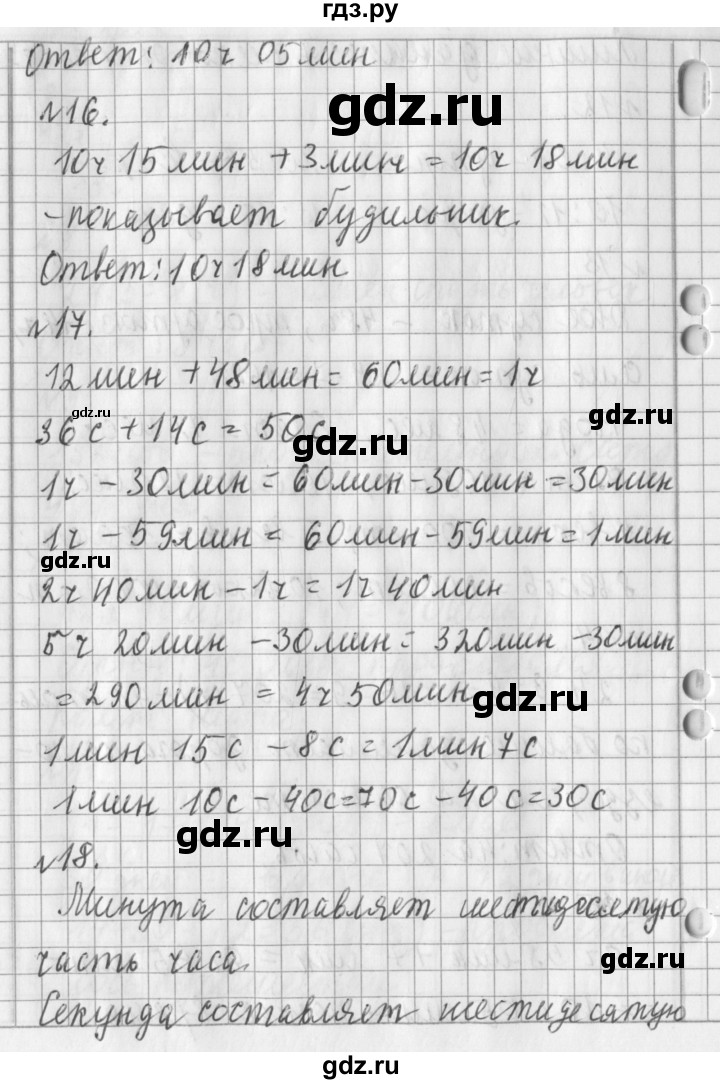 гдз.ру
Ответ: 10ч 05мин
№16.
gdz.ru
10ч 15мин + 3мин = 10ч 18мин
-показывает будильник.
Ответ: 10ч18мин
№17.
12мин + 48мин = 60мин = 1ч
gdz.ru
gdz.ru
36с + 14с = 50с
gdz.ru
1ч - 30мин = 60мин - 30мин = 30мин
1ч - 59мин = 60мин - 59мин = 1мин
gdz.ru
2ч 40мин - 1ч = 1ч 40мин
5ч 20мин - 30мин = 320мин - 30мин
= 290мин = 4ч 50мин
gdz.ru
1мин 15с - 8с = 1мин 7с
1мин 10с - 40с = 70с - 40с = 30с
gdz.ru
№18.
Минута составляет шестидесятую
часть часа.
gdz.ru
Секунда составляет шестидесятую
gdz.ru